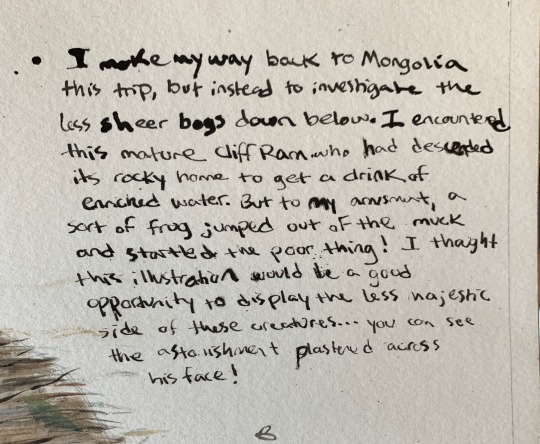 • I make my way back to Mongolia
this trip, but instead to investigate the
less sheer bogs down below. I encountered
this mature Cliff Ram who had descended
its rocky home to get a drink of
enriched water. But to my amusment, a
sort of frog jumped out of the muck
and startled the poor thing! I thaught
this illustration would be a good
opportunity to display the less majestic
side of these creatures... you can see
the astonishment plastered across
his face!